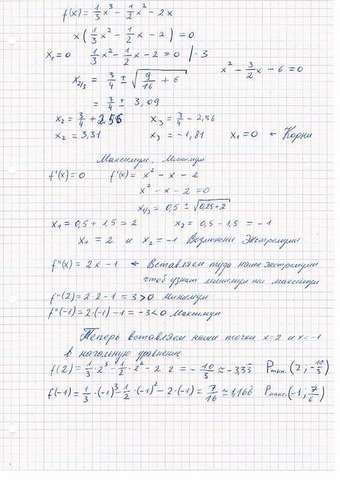 f(x) = 1/3 x³ - 1/2 x² - 2x
x(1/3 x² - 1/2 x - 2) = 0
x₁ = 0   1/3 x² - 1/2 x - 2 = 0 | · 3
x² - 3/2 x - 6 = 0
x₂/₃ = 3/4 ± √(9/16 + 6)
= 3/4 ± 3,09
x₂ = 3/4 + 2,56   x₃ = 3/4 - 2,56
x₂ = 3,31   x₃ = -1,81   x₁ = 0 ← Корни
Максимум, Минимум
f'(x) = 0   f'(x) = x² - x - 2
x² - x - 2 = 0
x₁/₂ = 0,5 ± √(0,25 + 2)
x₁ = 0,5 + 1,5 = 2   x₂ = 0,5 - 1,5 = -1
x₁ = 2 и x₂ = -1 Возможени Экстремумы
f''(x) = 2x - 1 ← Вставляем туда наши экстремумы
чтоб узнат минимум ли максимум
f''(2) = 2·2 - 1 = 3 > 0 Минимум
f''(-1) = 2·(-1) - 1 = -3 < 0 Максимум
Теперь вставляем наши точки x=2 и x=-1
в начальную уравнение
f(2) = 1/3 · 2³ - 1/2 · 2² - 2·2 = - 10/3 ≈ -3,35   Pмин.(2; -10/3)
f(-1) = 1/3 · (-1)³ - 1/2 · (-1)² - 2·(-1) = 7/16 ≈ 1,166   Pмакс.(-1, 7/6)